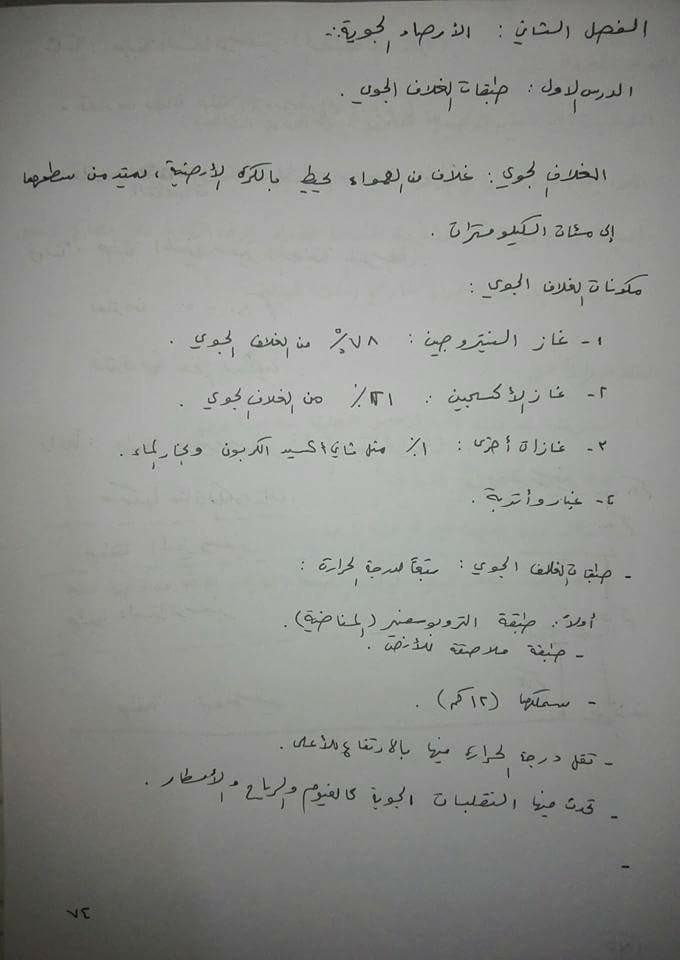 الفصل الثاني : الأرصاد الجوية :-
الدرس الاول : طبقات الغلاف الجوي .
الغلاف الجوي : غلاف من الهواء يحيط بالكرة الأرضية ، يمتد من سطحها
إلى مئات الكيلومترات .
مكونات الغلاف الجوي :
١- غاز النيتروجين : ٧٨٪ من الغلاف الجوي .
٢- غاز الأكسجين : ٢١٪ من الغلاف الجوي .
٣- غازات أخرى : ١٪ مثل ثاني أكسيد الكربون وبخار الماء .
٤- غبار وأتربة .
- طبقات الغلاف الجوي : تبعاً لدرجة الحرارة :
أولاً : طبقة التروبوسفير (المناخية) .
- طبقة ملاصقة للأرض .
- سمكها (١٢ كم) .
- تقل درجة الحرارة فيها بالارتفاع للأعلى .
- تحدث فيها التقلبات الجوية كالغيوم والرياح والأمطار .
-
٧٢